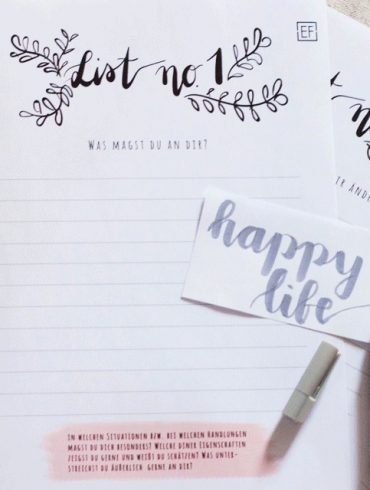 EF
List no. 1
WAS MAGST DU AN DIR?
happy
life
IN WELCHEN SITUATIONEN BZW. BEI WELCHEN HANDLUNGEN
MAGST DU DICH BESONDERS? WELCHE DINER EIGENSCHAFTEN
ZEIGST DU GERNE UND WEIßT DU SCHÄTZEN? WAS UNTER-
STREICHST DU ÄUßERLICH GERNE AN DIR?